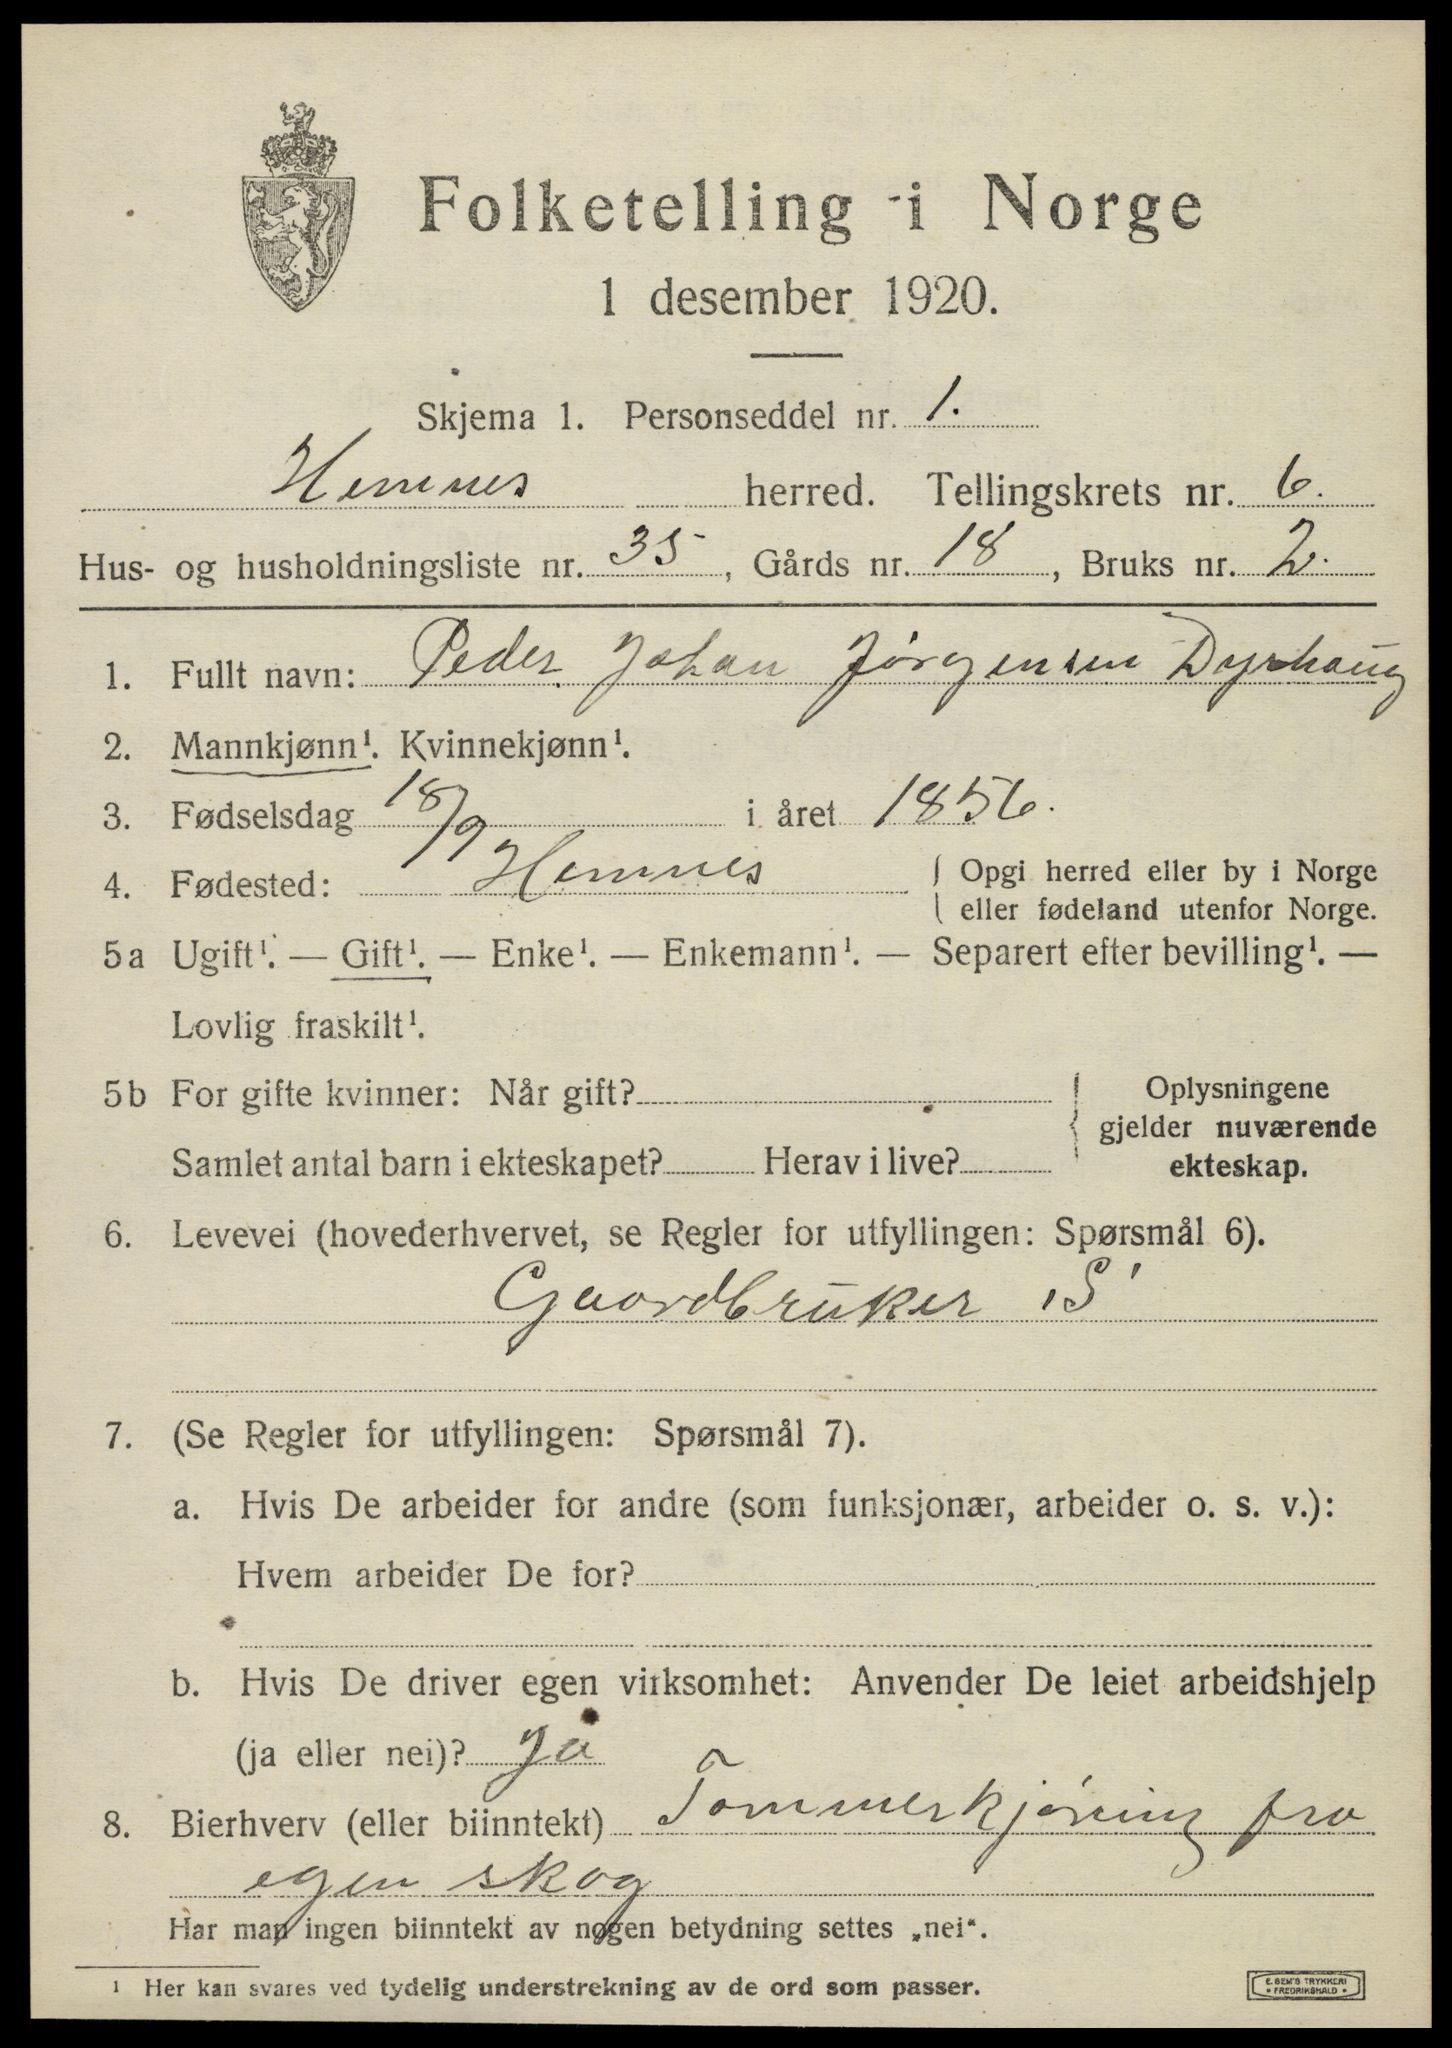 Folketelling i Norge
1 desember 1920.
Skjema 1. Personseddel nr. 1.
Hemnes herred. Tellingskrets nr. 6.
Hus- og husholdningsliste nr. 35, Gårds nr. 18, Bruks nr. 2.
1. Fullt navn: Peder Johan Jørgensen Dyrhaug
2. Mannkjønn¹. Kvinnekjønn¹.
3. Fødselsdag 18/9 i året 1856.
4. Fødested: Hemnes { Opgi herred eller by i Norge
eller fødeland utenfor Norge.
5a Ugift¹. — Gift¹. — Enke¹. — Enkemann¹. — Separert efter bevilling¹. —
Lovlig fraskilt¹.
5b For gifte kvinner: Når gift? { Oplysningene
gjelder nuværende
Samlet antal barn i ekteskapet? Herav i live? ekteskap.
6. Levevei (hovederhvervet, se Regler for utfyllingen: Spørsmål 6).
Gaardbruker "S"
7. (Se Regler for utfyllingen: Spørsmål 7).
a. Hvis De arbeider for andre (som funksjonær, arbeider o. s. v.):
Hvem arbeider De for?
b. Hvis De driver egen virksomhet: Anvender De leiet arbeidshjelp
(ja eller nei)? Ja
8. Bierhverv (eller biinntekt) Tømmerkjøring fra
egen skog
Har man ingen biinntekt av nogen betydning settes „nei“.
¹ Her kan svares ved tydelig understrekning av de ord som passer.
E. SEM'S TRYKKERI
• FREDRIKSHALD •